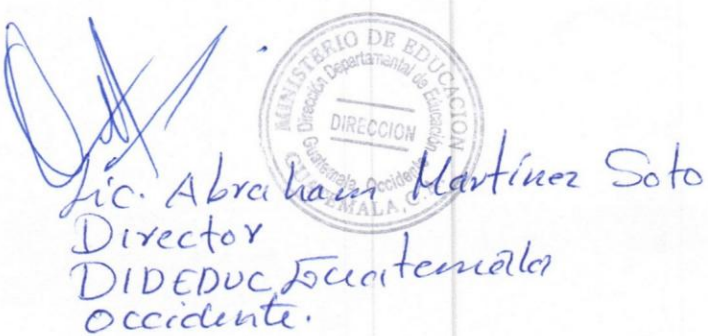 MINISTERIO DE EDUCACION
Dirección Departamental de Educación
DIRECCION
Guatemala Occidente
GUATEMALA, C.
Lic. Abraham Martínez Soto
Director
DIDEDUC, Guatemala
Occidente.